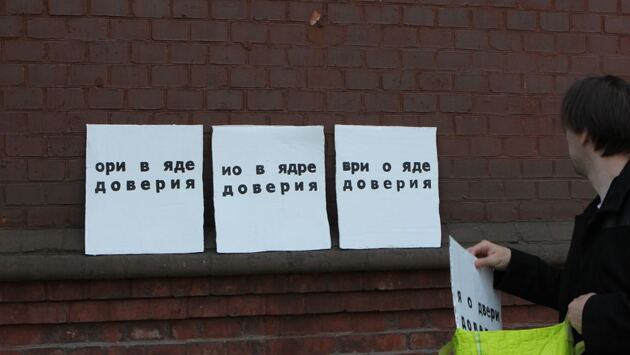 ори в яде
доверия
ио в ядре
доверия
ври о яде
доверия
я о двери
доверия